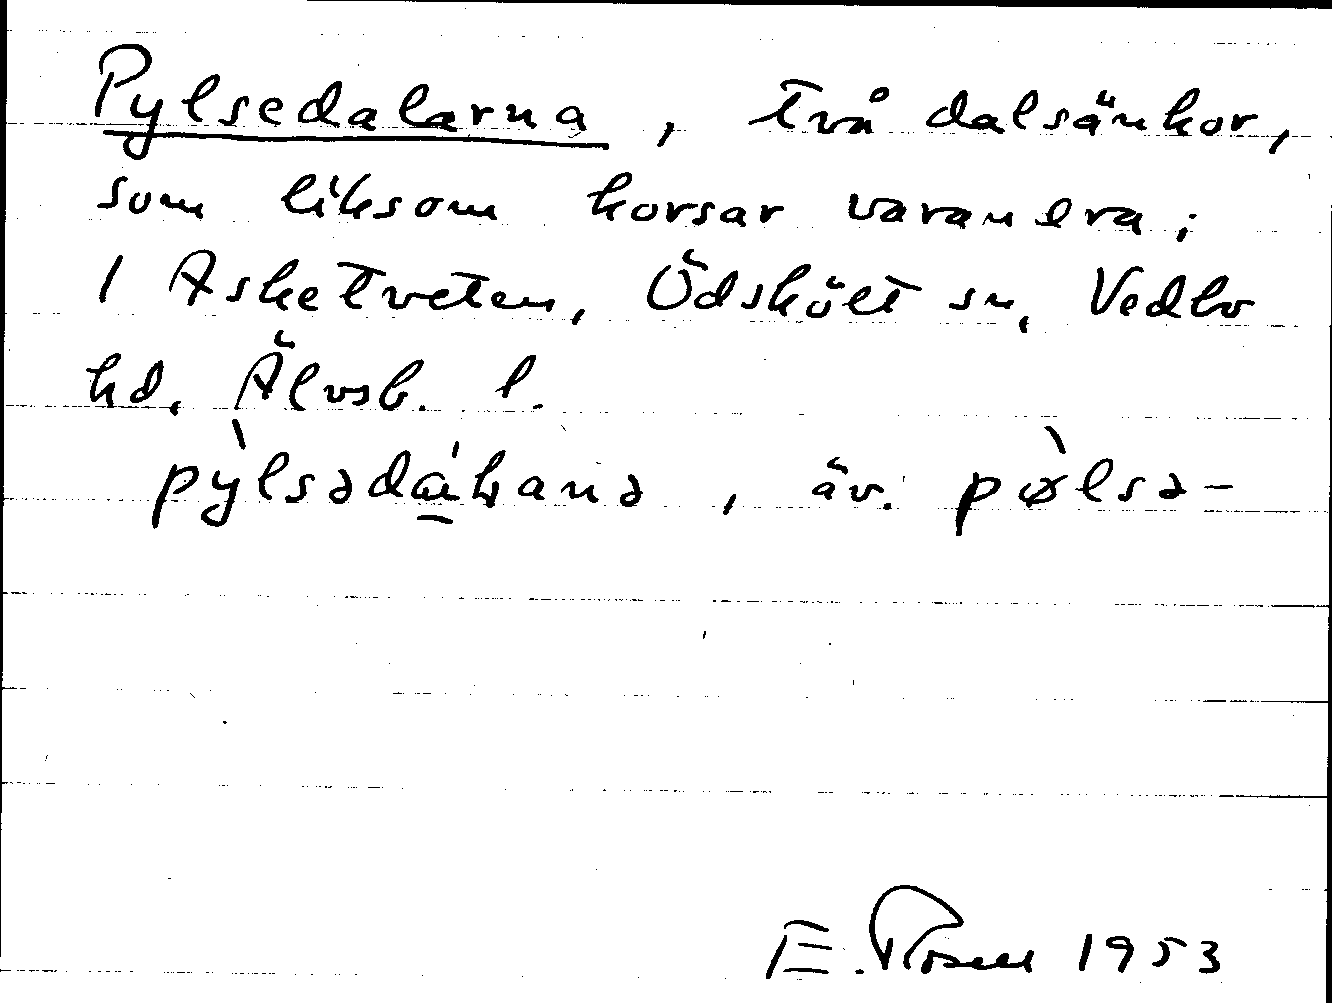 Pylsedalarna, två dalsänkor,
som liksom korsar varandra;
1 Asketveten, Ödskölt sn, Vedbo
hd. Älvsb. l.
pỳlsəda̱ʹɫ̣ana, äv. pø̀lsə-
E. Rosell 1953